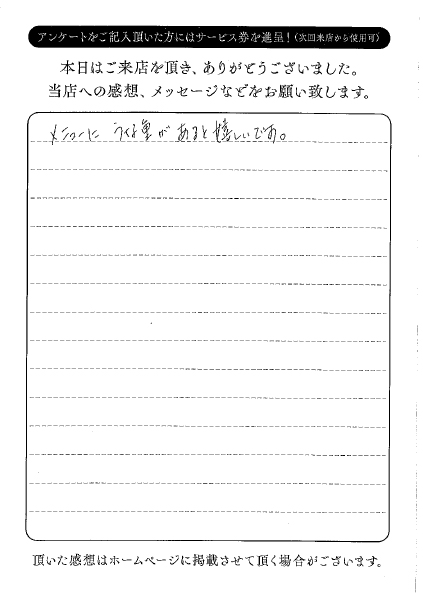 アンケートをご記入頂いた方にはサービス券を進呈！(次回来店から使用可)
本日はご来店を頂き、ありがとうございました。
当店への感想、メッセージなどをお願い致します。
メニューに うくらがあると嬉しいです。
頂いた感想はホームページに掲載させて頂く場合がございます。